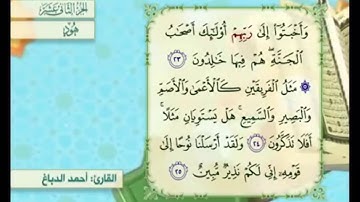 الجزء الثاني عشر
هود
وَأَخْبَتُوٓا۟ إِلَىٰ رَبِّهِمْ أُو۟لَٰٓئِكَ أَصْحَٰبُ
ٱلْجَنَّةِ ۖ هُمْ فِيهَا خَٰلِدُونَ ٢٣
۞ مَثَلُ ٱلْفَرِيقَيْنِ كَٱلْأَعْمَىٰ وَٱلْأَصَمِّ
وَٱلْبَصِيرِ وَٱلسَّمِيعِ ۚ هَلْ يَسْتَوِيَانِ مَثَلًا ۚ
أَفَلَا تَذَكَّرُونَ ٢٤ وَلَقَدْ أَرْسَلْنَا نُوحًا إِلَىٰ
قَوْمِهِۦٓ إِنِّى لَكُمْ نَذِيرٌ مُّبِينٌ ٢٥
القارئ: أحمد الدباغ